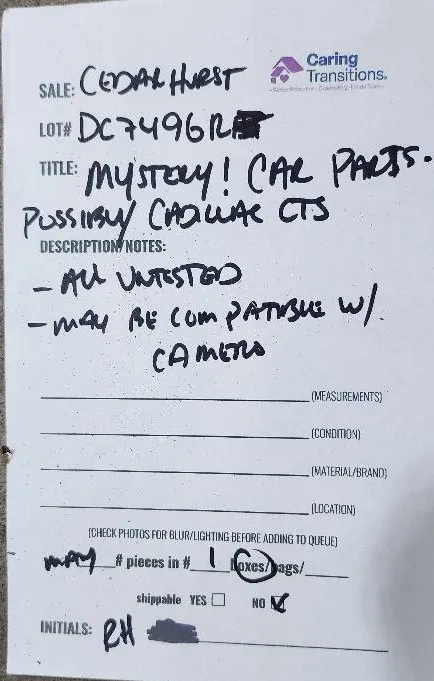 Caring
Transitions®
SALE: CEDARHURST
LOT# DC7496R
TITLE: MYSTERY! CAR PARTS.
POSSIBLY CADILLAC CTS
DESCRIPTION/NOTES:
- ALL UNTESTED
- MAY BE COMPATIBLE W/
CAMERO
(MEASUREMENTS)
(CONDITION)
(MATERIAL/BRAND)
(LOCATION)
(CHECK PHOTOS FOR BLUR/LIGHTING BEFORE ADDING TO QUEUE)
# pieces in # 1 boxes/bags/
shippable YES NO
INITIALS: RH